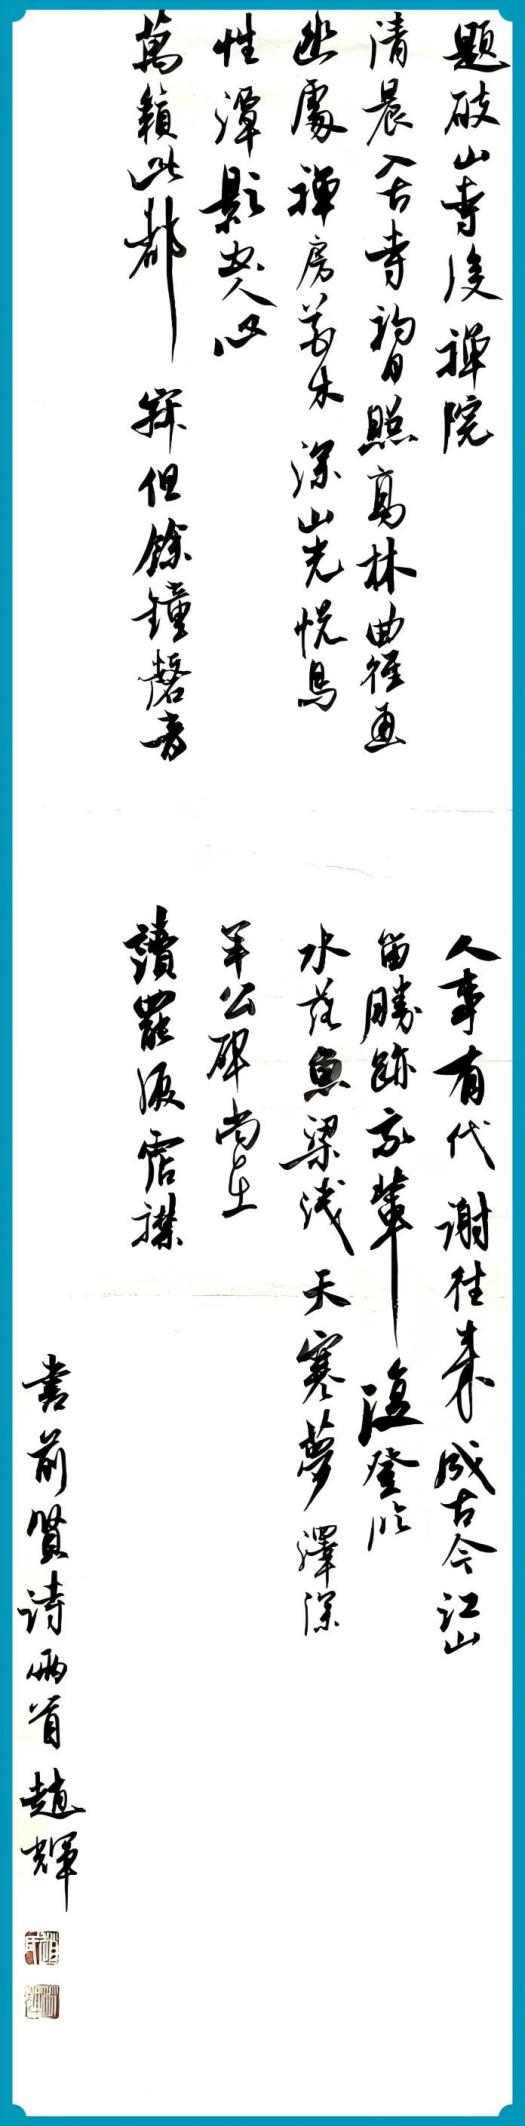 題破山寺後禪院
清晨入古寺初日照高林曲徑通
幽處禪房花木深山光悅鳥
性潭影空人心
萬籟此都寂但餘鐘磬音
人事有代謝往來成古今江山
留勝跡我輩復登臨
水落魚梁淺天寒夢澤深
羊公碑尚在
讀罷淚霑襟
書前賢詩兩首趙輝